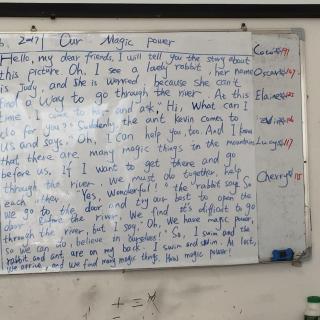 2017 Our Magic power
Hello, my dear friends, I will tell you the story about
this picture. Oh, I see a lovely rabbit, her name
is Judy, and She is worried because she can't
find a way to go through the river. At this
time I come to her and ask, "Hi, What can I
do for you?" Suddenly the ant kevin comes to
us and says, "Oh, I can help you, too. And I know
that there are many magic things in the mountain
before us. If I want to get there and go
through the river. We must do together, help
each other. "Yes, Wonderful!" the rabbit says. So
we go to the door and try our best to open the
door behind the river. We find it's difficult to go
through the river, but I say, "Oh, We have magic power,
so we can do, believe in ourselves!" So, I swim and the
rabbit and ant are on my back. I swim and swim. At last,
we arrive, and we find many magic things. How magic power!
Coco
Oscar
Elaine
Lucy 117
Cherry 115